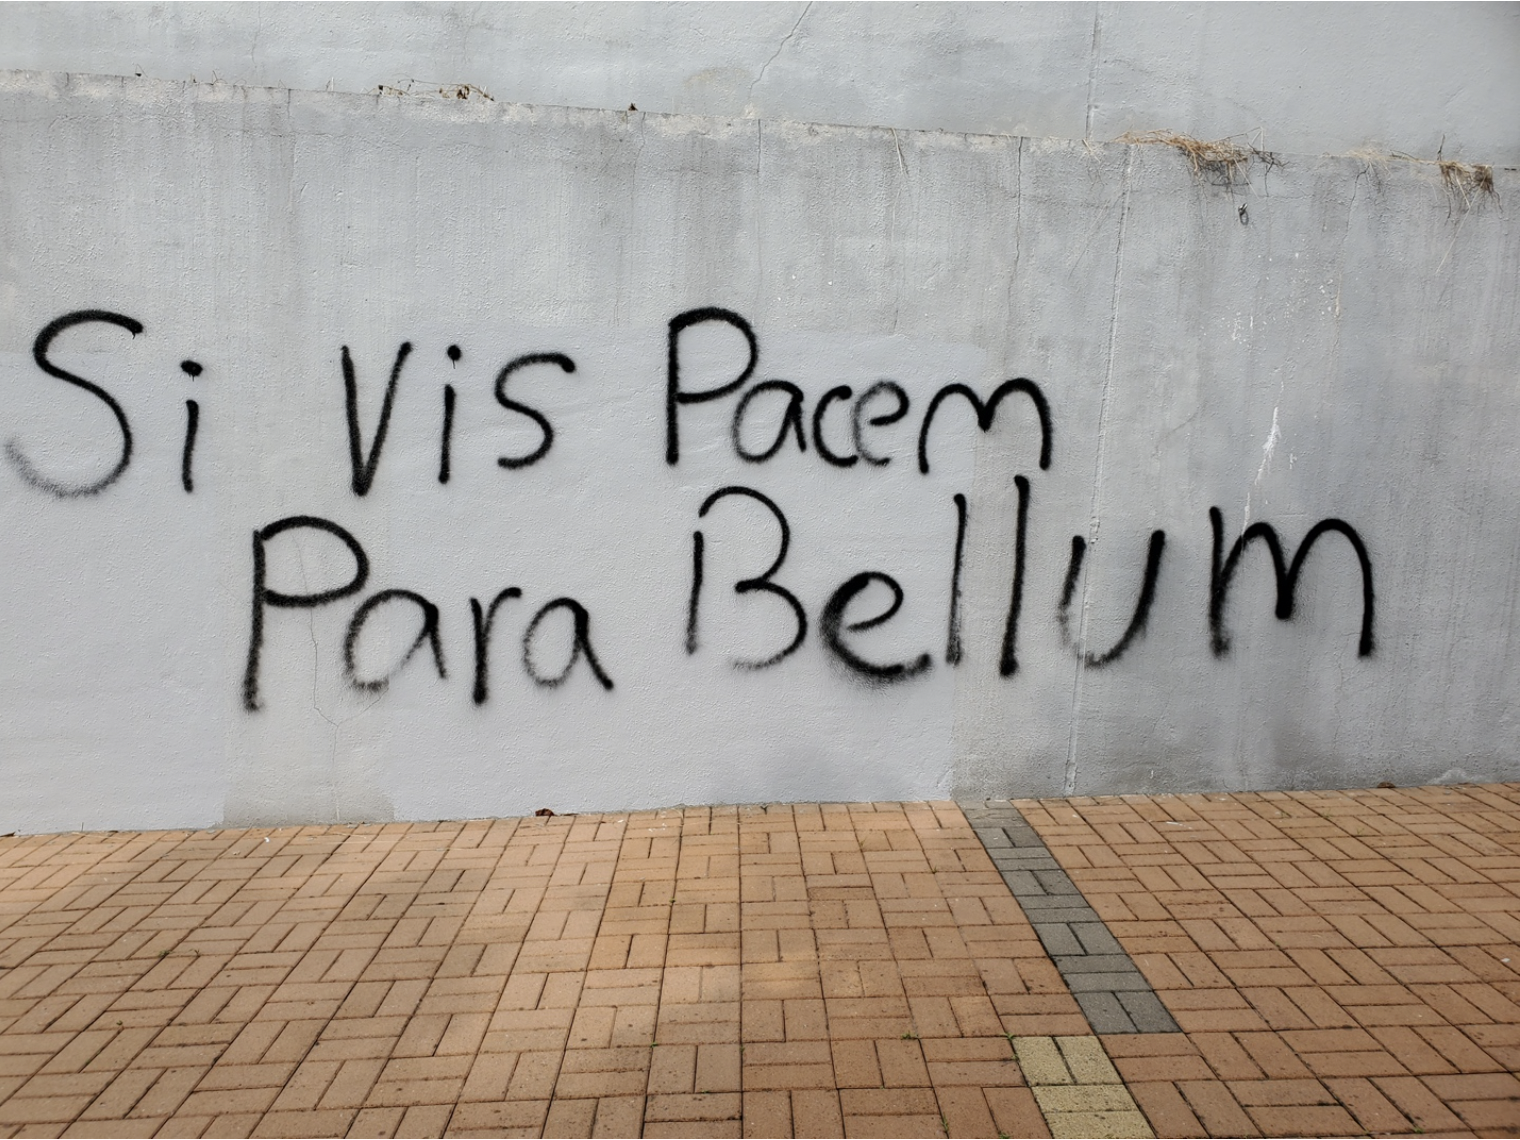 Si vis Pacem
Para Bellum